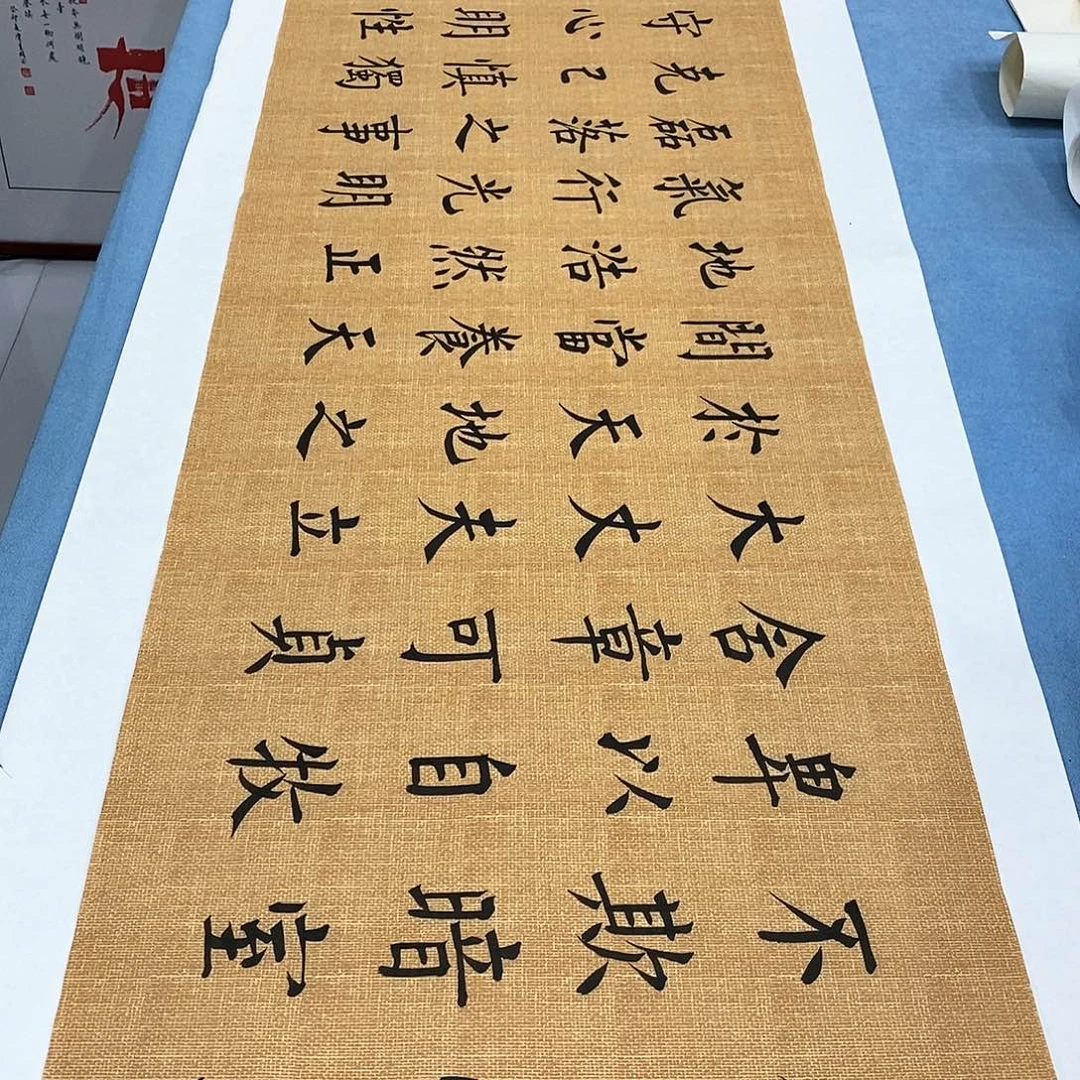 不欺暗室
卑以自牧
含章可貞
大丈夫立
於天地之
間當養天
地浩然正
氣行光明
磊落之事
克己慎獨
守心明性